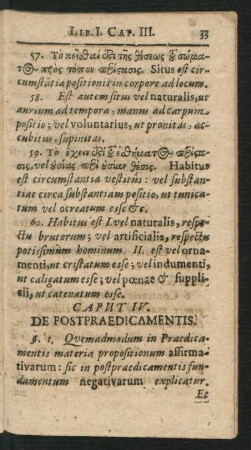 LIB. I. CAP. III. 33
57. Τὸ κεῖσθαί ἐστι τῆς θέσεως σώματ
πρὸς τόπον Situs est cir
cumstãtia positionis in corpore ad locum.
58. Est autem situs vel naturalis, ut
aurium ad tempora, manus ad carpum
positio; vel voluntarius, ut pronitas, ac
cubitus, supinitas.
59. Τὸ ἔχειν ἐστὶ
θέσις. Habitus
est circumstantia vestitus: vel substan
tiae circa substantiam positio, ut tunica
tum vel ocreatum esse &c.
60. Habitus est I. vel naturalis, respe
ctu brutorum; vel artificialis, respectu
potissimùm hominum. II. est vel orna
menti, ut cristatum esse; vel indumenti,
ut caligatum esse; vel pœnae & suppli
cii, ut catenatum esse.
CAPUT IV.
DE POSTPRAEDICAMENTIS.
§. 1. Quemadmodum in Praedica
mentis materia propositionum affirma
tivarum: sic in postpraedicamentis fun
damentum negativarum explicatur.
Et